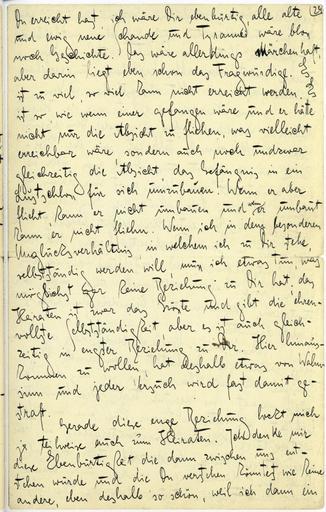 Du erreicht hast, ich wäre Dir ebenbürtig, alle alte
und ewig neue Schande und Tyrannei wäre bloss
noch Geschichte. Das wäre allerdings märchenhaft,
aber darin liegt eben schon das Fragwürdige. Es
ist zu viel, so viel kann nicht erreicht werden. Es
ist so, wie wenn einer gefangen wäre und er hätte
nicht nur die Absicht zu fliehen, was vielleicht
erreichbar wäre sondern auch noch undzwar
gleichzeitig die Absicht, das Gefängnis in ein
Lustschloss für sich umzubauen. Wenn er aber
flieht kann er nicht umbauen und wenn er umbaut
kann er nicht fliehn. Wenn ich in dem besonderen
Unglücksverhältnis in welchem ich zu Dir stehe,
selbstständig werden will, muss ich etwas tun was
möglichst gar keine Beziehung zu Dir hat, das
Heiraten ist zwar das Grösste und gibt die ehren-
vollste Selbstständigkeit aber es ist auch gleich-
zeitig in engster Beziehung zu Dir. Hier hinaus-
kommen zu wollen, hat deshalb etwas von Wahn-
sinn und jeder Versuch wird fast damit ge-
straft.
Gerade diese enge Beziehung lockt mich
ja teilweise auch zum Heiraten. Ich denke mir
diese Ebenbürtigkeit die dann zwischen uns ent-
stehen würde und die Du verstehen könntest wie keine
andere, eben deshalb so schön, weil ich dann ein